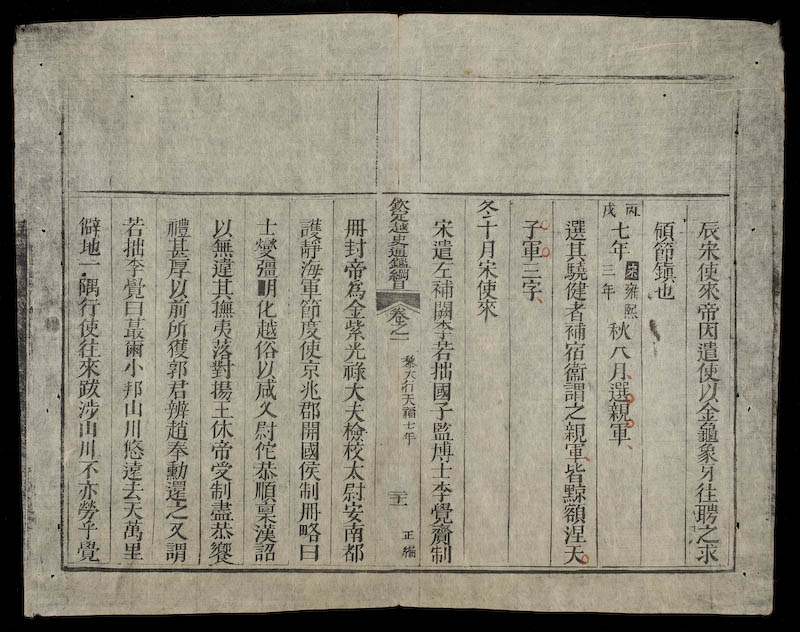 辰宋使來帝因遣使以金龜象牙往聘之求
領節鎮也
丙戌七年宋雍熙三年秋八月選親軍
選其驍健者補宿衞謂之親軍皆黥額涅天
子軍三字
冬十月宋使來
宋遣左補闕李若拙國子監博士李覺賫制
欽定越史通鑑綱目 卷之一 黎大行天福七年 二十一 正編
冊封帝爲金紫光祿大夫檢校太尉安南都
護靜海軍節度使京兆郡開國侯制冊略曰
士燮彊明化越俗以咸乂尉佗恭順稟漢詔
以無違其撫夷落對揚王休帝受制盡恭饗
禮甚厚以前所獲郭君辨趙奉勳還之又謂
若拙李覺曰蕞爾小邦山川悠遠去天萬里
僻地一隅行使往來跋涉山川不亦勞乎覺